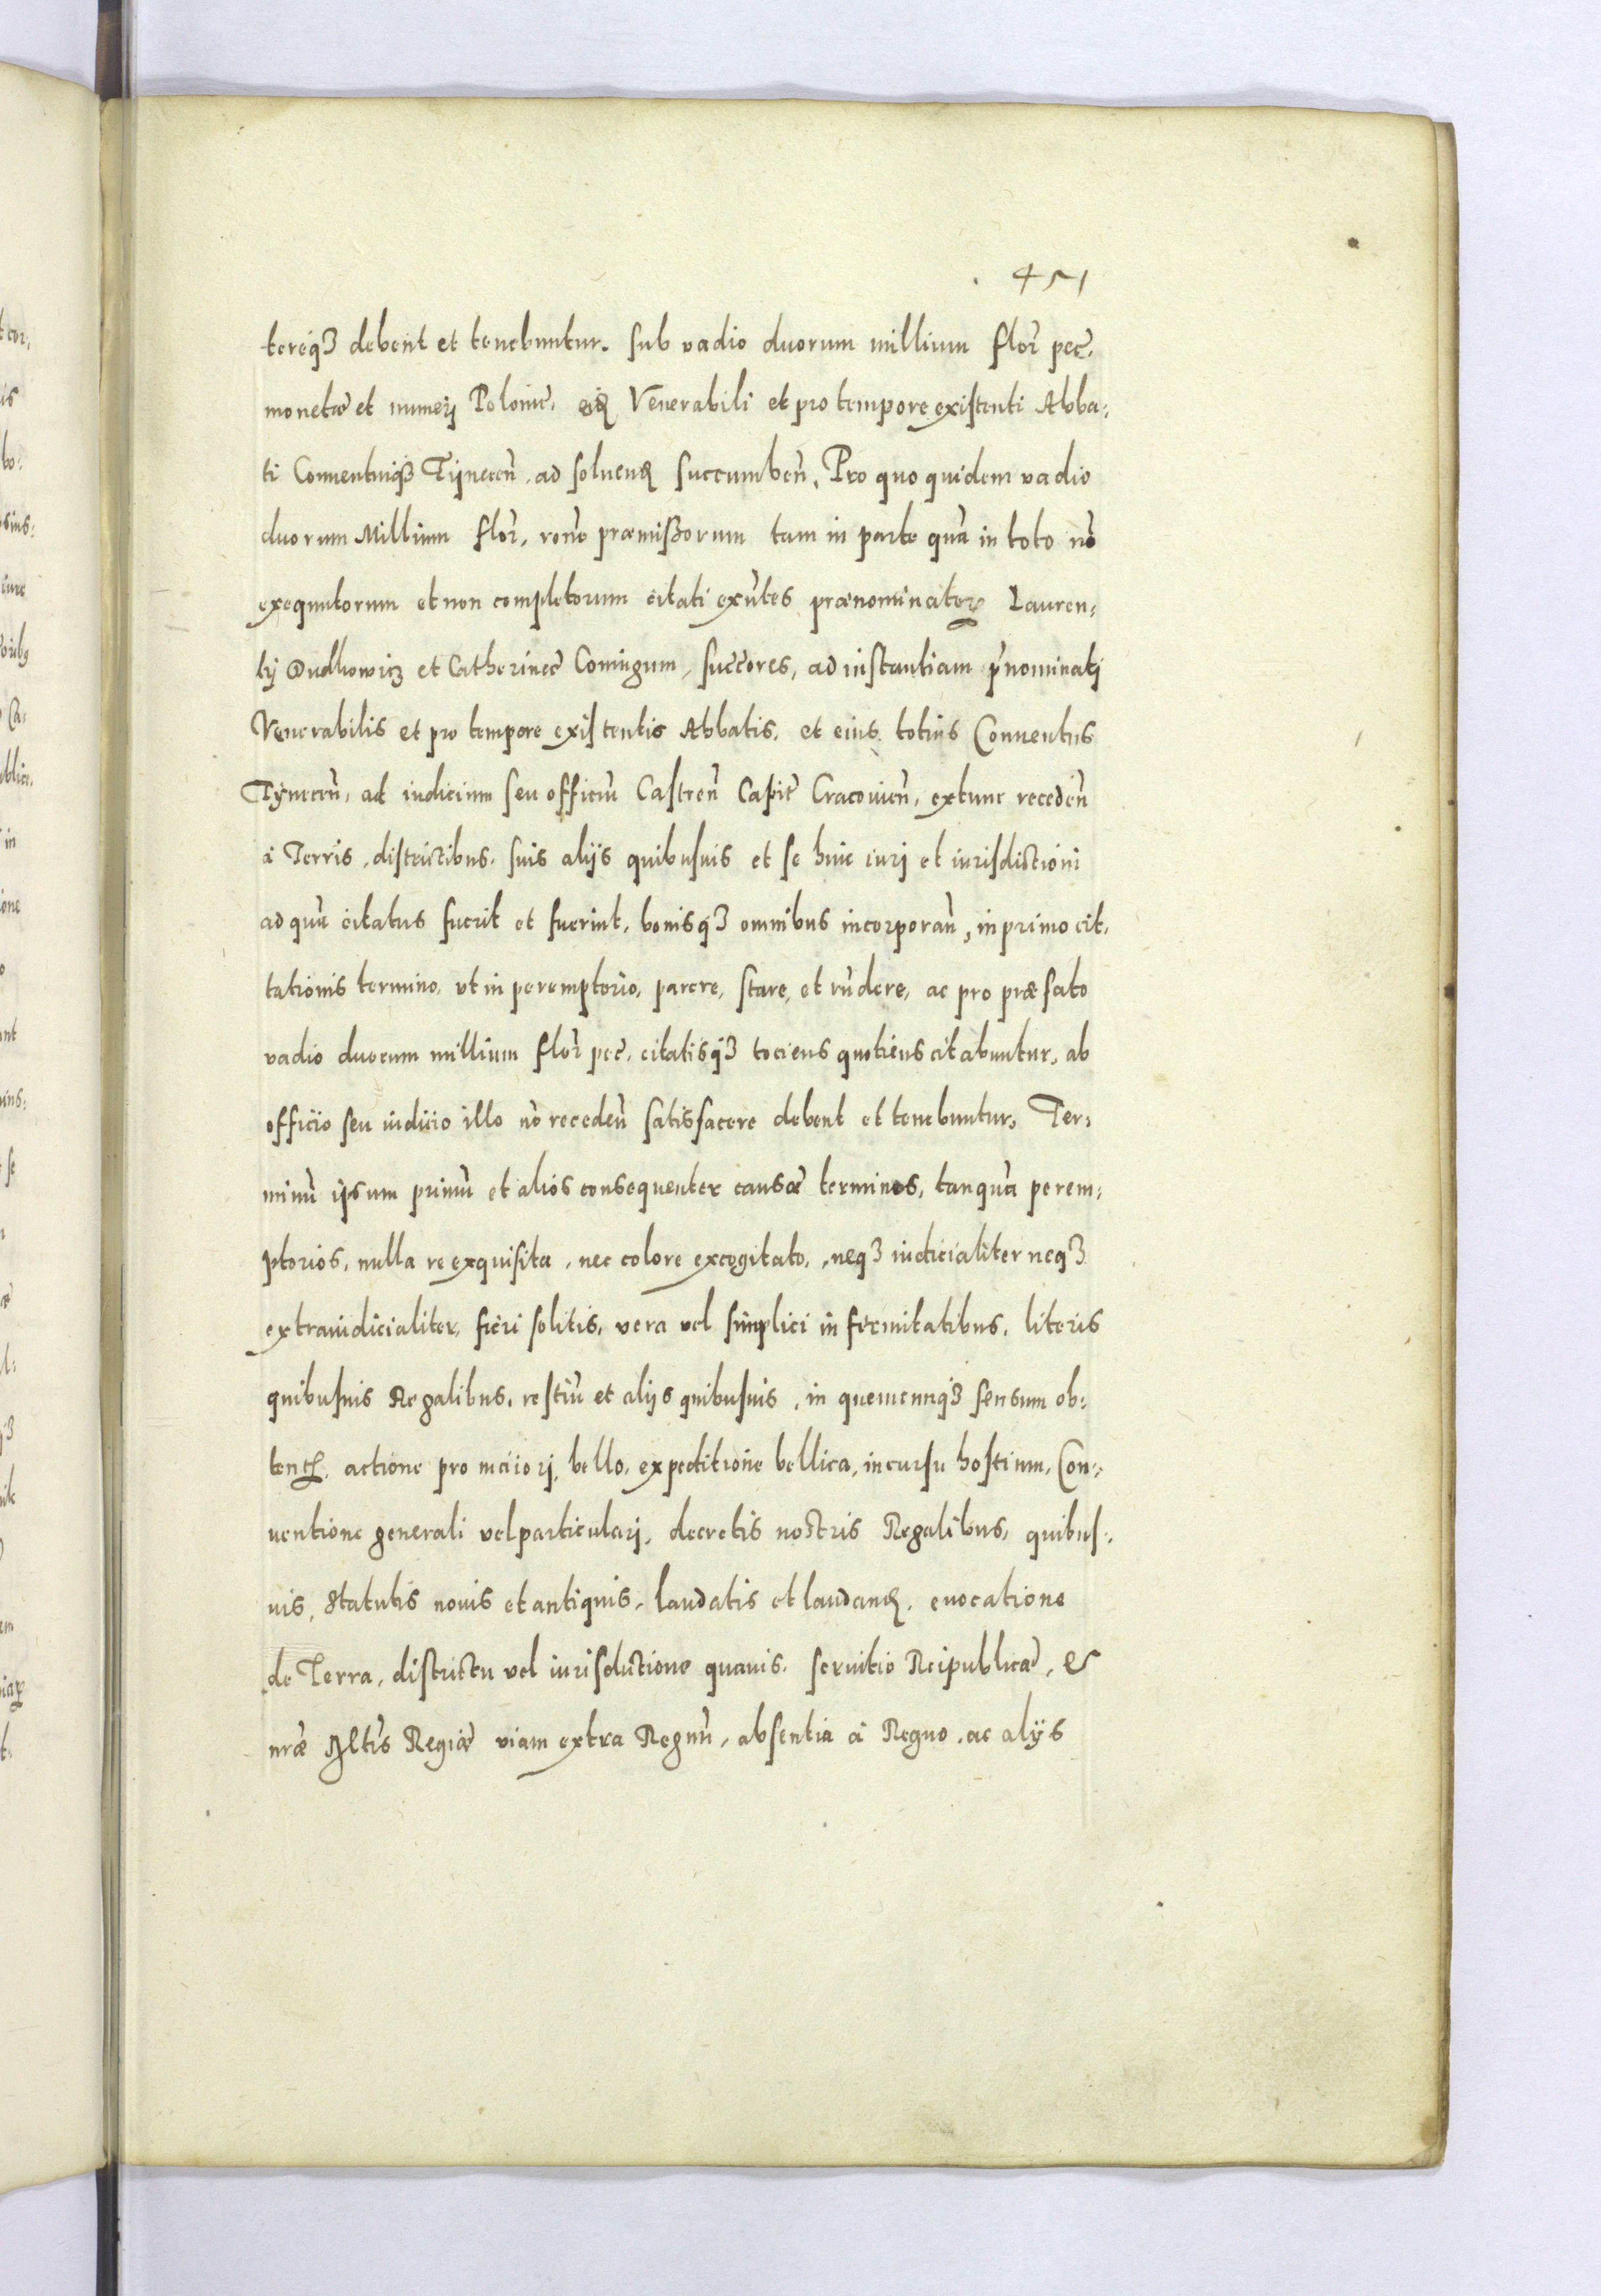 451
tereqꝫ debent et tenebuntur. sub vadio duorum millium flor̃ pec̃.
monetæ et numerj Polonic̃. eiđ Venerabili et pro tempore existenti Abba,
ti Conuentuiqꝫ Tijnecen̄. ad soluenđ succumben̄. Pro quo quidem vadio
duorum Millium flor̃, rōne præmißorum tam in parte quā in toto nō
exequutorum et non completorum citati exn̄tes prænominatoꝝ Lauren,
tij Dudkowicz et Catherinæ Coniugum, succ̄ores, ad instantiam p̄nominatj
Venerabilis et pro tempore existentis Abbatis. et eius totius Conuentus
Tÿnecen̄, ad iudicium seu officiū Castren̄ Capit̃ Cracouien̄, extunc receden̄
à Terris, districtibus. suis alijs quibusuis et se huic iurj et iurisdictioni
ad quā citatus fuerit et fuerint, bonisqꝫ omnibus incorporan̄, in primo cit,
tationis termino, vt in peremptorio, parere, stare, et rn̄dere, ac pro præfato
vadio duorum millium flor̃ pec̃. citatisqꝫ tociens quotiens citabuntur, ab
officio seu iudicio illo nō receden̄ satisfacere debent et tenebuntur, Ter,
minū ipsum primū et alios consequenter causæ terminos, tanquā perem,
ptorios, nulla re exquisita, nec colore excogitato, neqꝫ iudicialiter neqꝫ
extraiudicialiter, fieri solitis, vera vel simplici infirmitatibus, literis
quibusuis Regalibus, restiū et alijs quibusuis, in quemcunqꝫ sensum ob,
tent̃, actione pro maiorj, bello, expeditione bellica, incursu hostium, Con,
uentione generali vel particularj, decretis nostris Regalibus, quibus,
uis, Statutis nouis et antiquis, laudatis et laudanđ. euocatione
de Terra, districtu vel iurisdictione quauis. seruitio Reipublicæ, &
nræ Mt̄is Regiæ viam extra Regnū, absentia à Regno, ac alijs